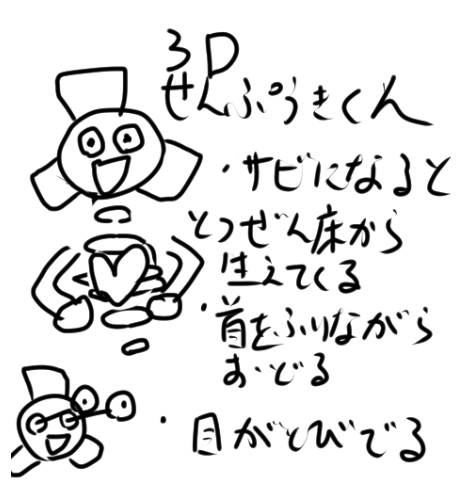 3D
せんぷうきくん
・サビになると
とつぜん床から
生えてくる
・首をふりながら
おどる
・目がとびでる